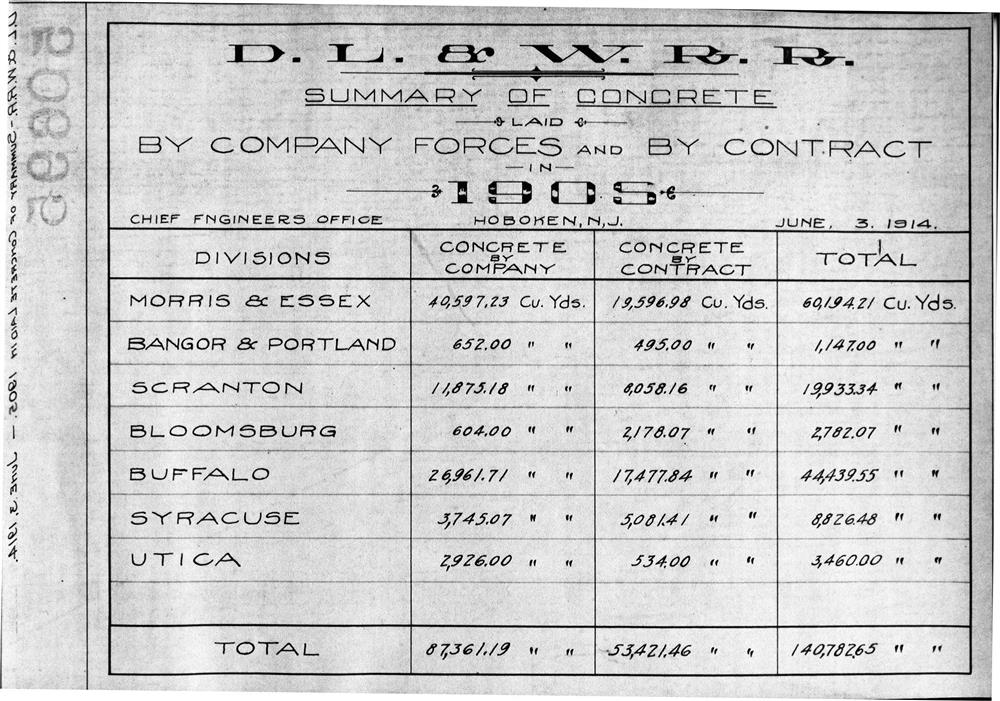 D. L. & W. R. R.
SUMMARY OF CONCRETE
LAID
BY COMPANY FORCES AND BY CONTRACT
— IN —
1905
CHIEF ENGINEERS OFFICE HOBOKEN, N.J. JUNE, 3. 1914.
DIVISIONS CONCRETE BY COMPANY CONCRETE BY CONTRACT TOTAL
MORRIS & ESSEX 40,597.23 Cu. Yds. 19,596.98 Cu. Yds. 60,194.21 Cu. Yds.
BANGOR & PORTLAND 652.00 " " 495.00 " " 1,147.00 " "
SCRANTON 11,875.18 " " 8,058.16 " " 19,933.34 " "
BLOOMSBURG 604.00 " " 2,178.07 " " 2,782.07 " "
BUFFALO 26,961.71 " " 17,477.84 " " 44,439.55 " "
SYRACUSE 3,745.07 " " 5,081.41 " " 8,826.48 " "
UTICA 2,926.00 " " 534.00 " " 3,460.00 " "
TOTAL 87,361.19 " " 53,421.46 " " 140,782.65 " "
D.L.&W.R.R. - SUMMARY OF CONCRETE LAID IN 1905. — JUNE 3, 1914.